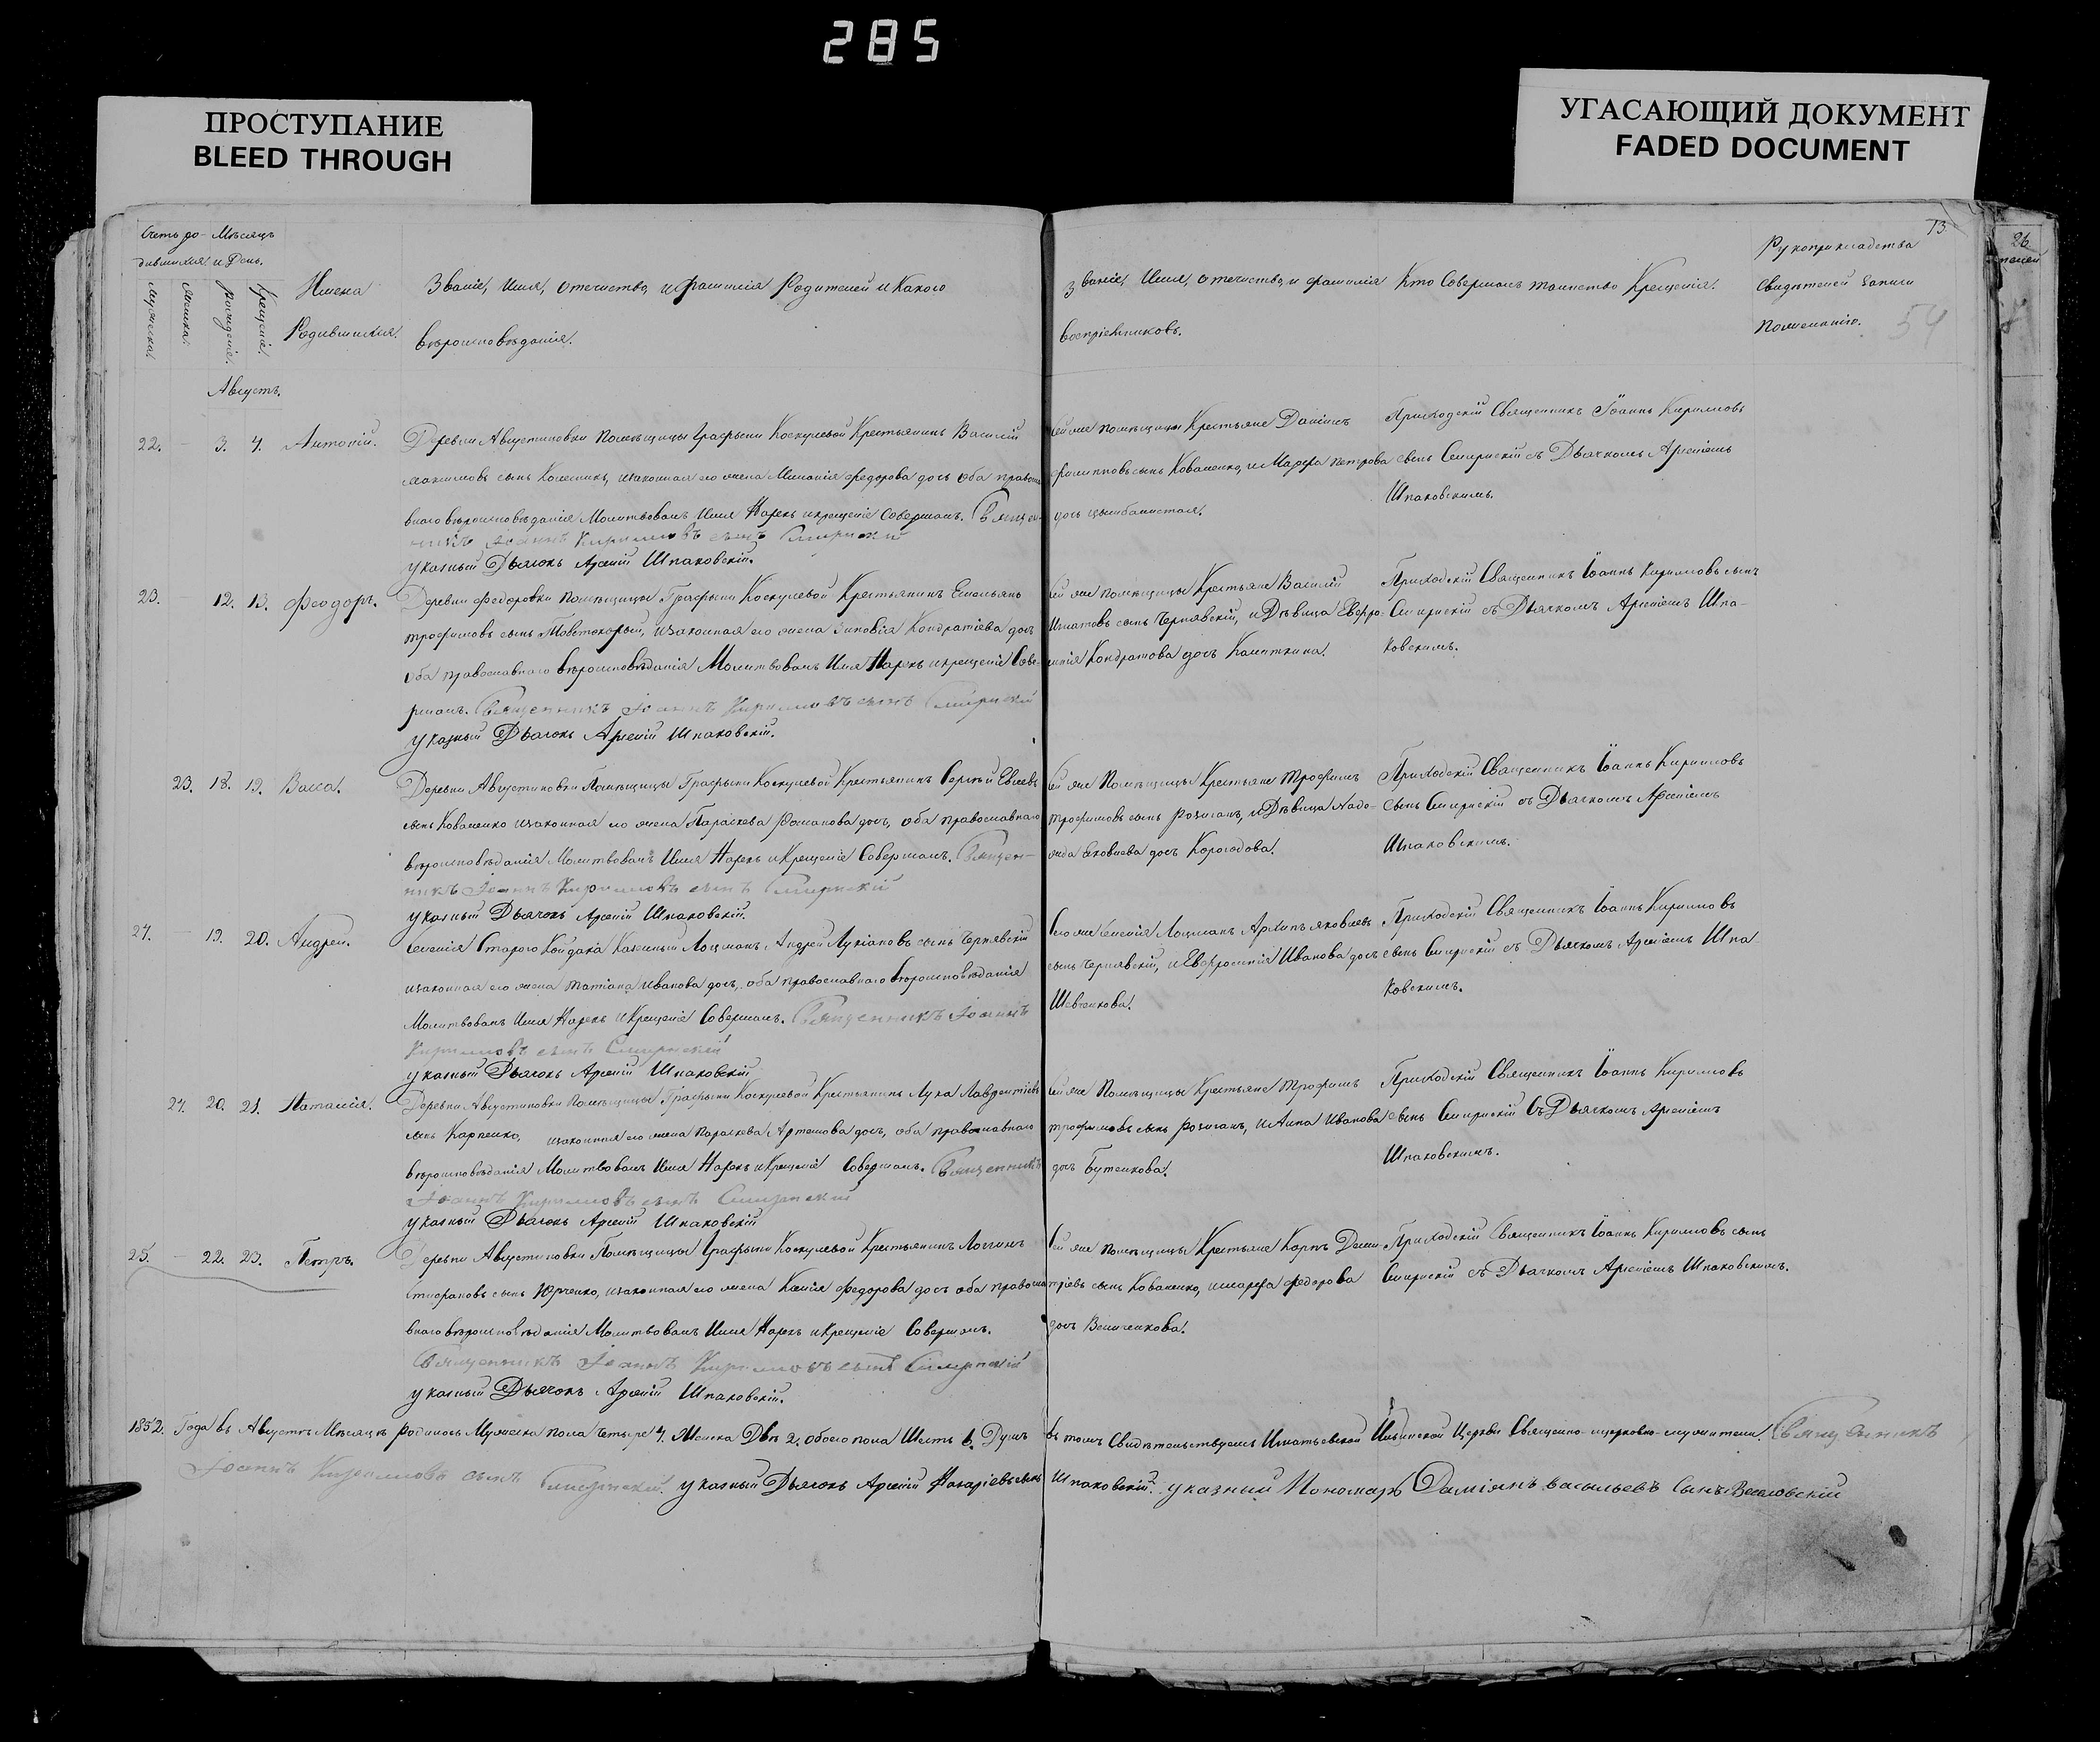 285
ПРОСТУПАНИЕ
BLEED THROUGH
УГАСАЮЩИЙ ДОКУМЕНТ
FADED DOCUMENT
73
54
26
Счетъ ро- Мѣсяцъ
дившихся и День.
мужеска.
женска.
рожденія.
крещенія.
Имена
Родившихся.
Званіе, Имя, Отечество, и фамилія Родителей и Какого
вѣроисповѣданія.
Званіе, Имя, отечество, и фамилія
воспріемниковъ.
Кто Совершалъ таинство Крещенія.
Рукоприкладства
Свидѣтелей записи
по желанію.
Августъ.
22. – 3. 4. Антоній.
Деревни Августиновки помѣщицы Графыни Коскулевой Крестьянинъ Василій
Максимовъ сынъ Колесникъ, изаконная его жена Меланія Федорова дочь оба правосла-
внаго вѣроисповѣданія Молитвовалъ Имя Нарекъ и крещеніе Совершалъ. Священ-
никъ Іоаннъ Кирилловъ сынъ Смирнскій
указный Дьячокъ Арсеній Шпаковскій.
Сей же помѣщицы Крестьяне Даніилъ
Филипповъ сынъ Коваленко, и Марфа Петрова
дочь Цымбалистая.
Приходскій Священникъ Іоаннъ Кирилловъ
сынъ Смирнскій съ Дьячкомъ Арсеніемъ
Шпаковскимъ.
23. – 12. 13. Феодоръ.
Деревни Федоровки помѣщицы Графыни Коскулевой Крестьянинъ Емельянъ
Трофимовъ сынъ Товстокорый, изаконная его жена Зиновія Кондратіева дочь
оба православнаго вѣроисповѣданія Молитвовалъ Имя Нарекъ и крещеніе Сове-
ршалъ. Священникъ Іоаннъ Кирилловъ сынъ Смирнскій
указный Дьячокъ Арсеній Шпаковскій.
Сей же помѣщицы Крестьяне Василій
Игнатовъ сынъ Чернявскій, и Дѣвица Евфро-
синія Кондратова дочь Калиткина.
Приходскій Священникъ Іоаннъ Кирилловъ сынъ
Смирнскій съ Дьячкомъ Арсеніемъ Шпа-
ковскимъ.
23. 18. 19. Васса.
Деревни Августиновки Помѣщицы Графыни Коскулевой Крестьянинъ Сергѣй Евсеевъ
сынъ Коваленко изаконная его жена Параскева Романова дочь, оба православнаго
вѣроисповѣданія Молитвовалъ Имя Нарекъ и Крещеніе Совершалъ. Священ-
никъ Іоаннъ Кирилловъ сынъ Смирнскій
указный Дьячокъ Арсеній Шпаковскій.
Сей же Помѣщицы Крестьяне Трофимъ
Трофимовъ сынъ Розиганъ, и Дѣвица Наде-
жда Яковлева дочь Корогодова.
Приходскій Священникъ Іоаннъ Кирилловъ
сынъ Смирнскій съ Дьячкомъ Арсеніемъ
Шпаковскимъ.
24. – 19. 20. Андрей.
селенія Старого Койдака Казенный Лоцманъ Андрей Лукіановъ сынъ Чернявскій
изаконная его жена Татіана Иванова дочь, оба православнаго вѣроисповѣданія
Молитвовалъ Имя Нарекъ и Крещеніе Совершалъ. Священникъ Іоаннъ
Кирилловъ сынъ Смирнскій
указный Дьячокъ Арсеній Шпаковскій
Сего же селенія Лоцманъ Архипъ Яковлевъ
сынъ Чернявскій, и Евфросинія Иванова дочь
Шевченкова.
Приходскій Священникъ Іоаннъ Кирилловъ
сынъ Смирнскій съ Дьячкомъ Арсеніемъ Шпа-
ковскимъ.
24. 20. 21. Наталія.
Деревни Августиновки Помѣщицы Графыни Коскулевой Крестьянинъ Лука Лаврентіевъ
сынъ Карпенко, изаконная его жена Параскева Артемова дочь, оба православнаго
вѣроисповѣданія Молитвовалъ Имя Нарекъ и Крещеніе Совершалъ. Священникъ
Іоаннъ Кирилловъ сынъ Смирнскій
указный Дьячокъ Арсеній Шпаковскій
Сей же Помѣщицы Крестьяне Трофимъ
Трофимовъ сынъ Розиганъ, и Анна Иванова
дочь Бутенкова.
Приходскій Священникъ Іоаннъ Кирилловъ
сынъ Смирнскій съ Дьячкомъ Арсеніемъ
Шпаковскимъ.
25. – 22. 23. Петръ.
Деревни Августиновки Помѣщицы Графыни Коскулевой Крестьянинъ Логинъ
Стефановъ сынъ Юрченко, изаконная его жена Ксенія Федорова дочь оба правосла-
внаго вѣроисповѣданія Молитвовалъ Имя Нарекъ и Крещеніе Совершалъ.
Священникъ Іоаннъ Кирилловъ сынъ Смирнскій
указный Дьячокъ Арсеній Шпаковскій.
Сей же помѣщицы Крестьяне Карпъ Дими-
тріевъ сынъ Коваленко, и марфа Федорова
дочь Величенкова.
Приходскій Священникъ Іоаннъ Кирилловъ сынъ
Смирнскій съ Дьячкомъ Арсеніемъ Шпаковскимъ.
1852. Года въ Августѣ Мѣсяцѣ родилось Мужеска пола Четыре 4. Женска Двѣ 2. обоего пола Шесть 6. Душъ въ томъ Свидѣтельствуемъ Игнатьевской Ильинской Церкви Священно-церковно-служители. Священникъ
Іоаннъ Кирилловъ сынъ Смирнскій. указный Дьячокъ Арсеній Назаріевъ сынъ Шпаковскій. указный Пономарь Даміянъ васильевъ Сынъ Веселовскій